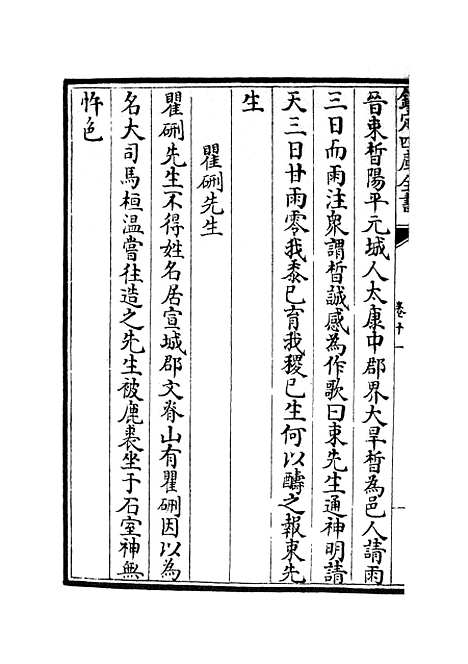 欽定四庫全書
卷十一
晉束晳陽平元城人太康中郡界大旱晳為邑人請雨
三日而雨注衆謂晳誠感為作歌曰束先生通神明請
天三日甘雨零我黍已育我稷已生何以醻之報束先
生
瞿硎先生
瞿硎先生不得姓名居宣城郡文脊山有瞿硎因以為
名大司馬桓溫嘗往造之先生被鹿裘坐于石室神無
忤色